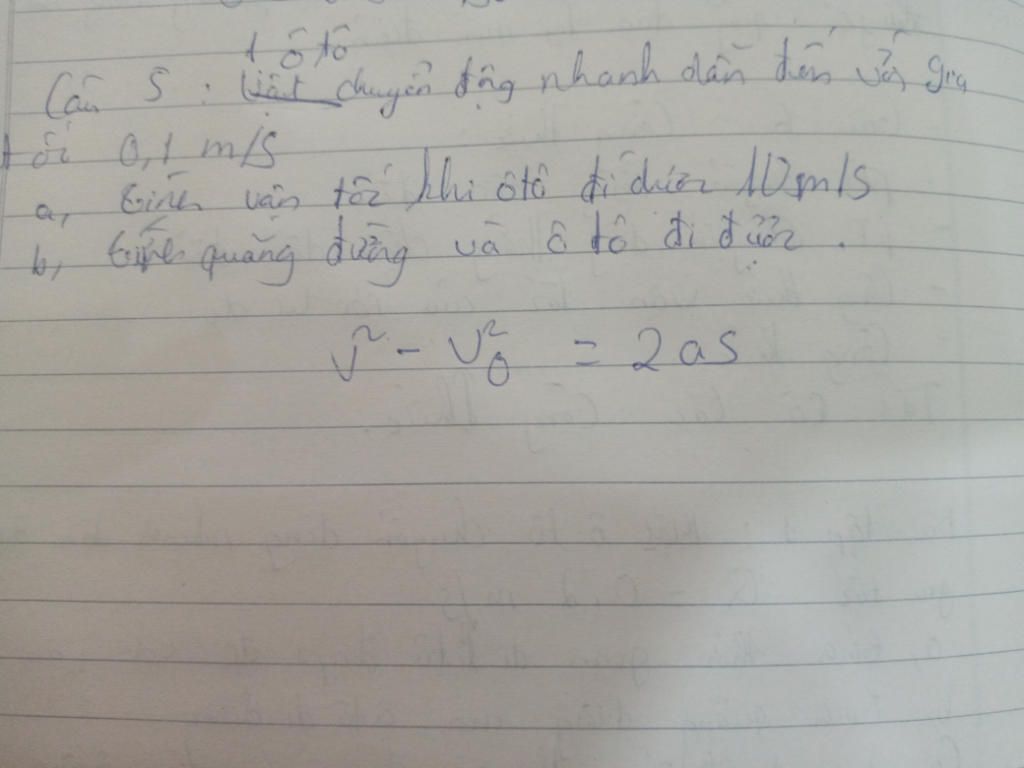 1 ô tô
Câu 5 : chuyển động nhanh dần đến với gia
tối 0,1 m/s
a, tính vận tốc khi ôtô đi được 10m/s
b, tính quãng đường và ô tô đi được .
v² - v₀² = 2as